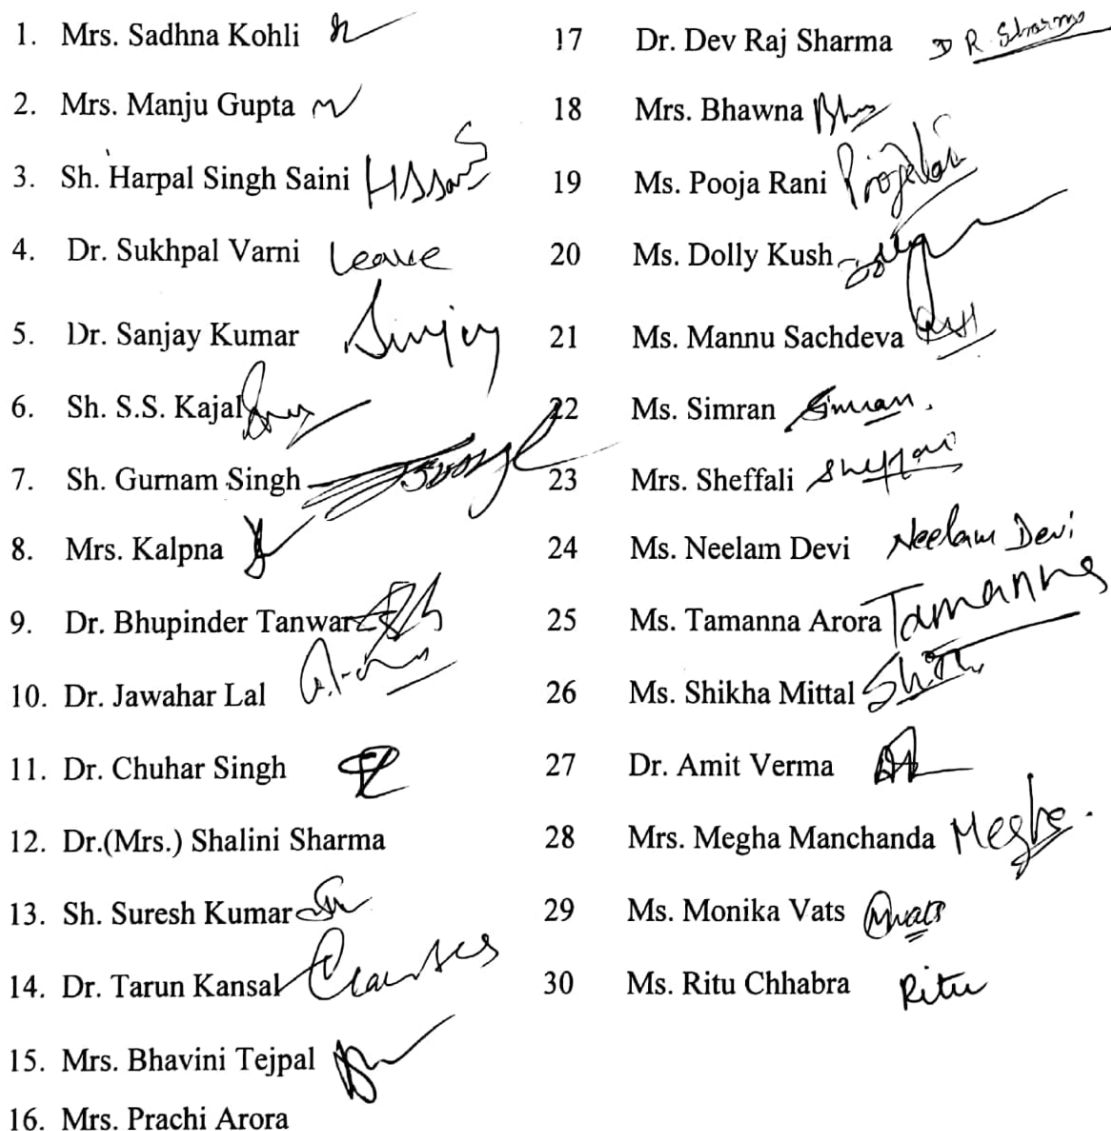 1. Mrs. Sadhna Kohli
2. Mrs. Manju Gupta
3. Sh. Harpal Singh Saini HSSaini
4. Dr. Sukhpal Varni Leave
5. Dr. Sanjay Kumar Sanjay
6. Sh. S.S. Kajal
7. Sh. Gurnam Singh
8. Mrs. Kalpna
9. Dr. Bhupinder Tanwar
10. Dr. Jawahar Lal
11. Dr. Chuhar Singh
12. Dr.(Mrs.) Shalini Sharma
13. Sh. Suresh Kumar
14. Dr. Tarun Kansal
15. Mrs. Bhavini Tejpal
16. Mrs. Prachi Arora
17 Dr. Dev Raj Sharma D R Sharma
18 Mrs. Bhawna
19 Ms. Pooja Rani
20 Ms. Dolly Kush
21 Ms. Mannu Sachdeva
22 Ms. Simran Simran.
23 Mrs. Sheffali Sheffali
24 Ms. Neelam Devi Neelam Devi
25 Ms. Tamanna Arora Tamanna
26 Ms. Shikha Mittal
27 Dr. Amit Verma
28 Mrs. Megha Manchanda Megha.
29 Ms. Monika Vats Mvats
30 Ms. Ritu Chhabra Ritu